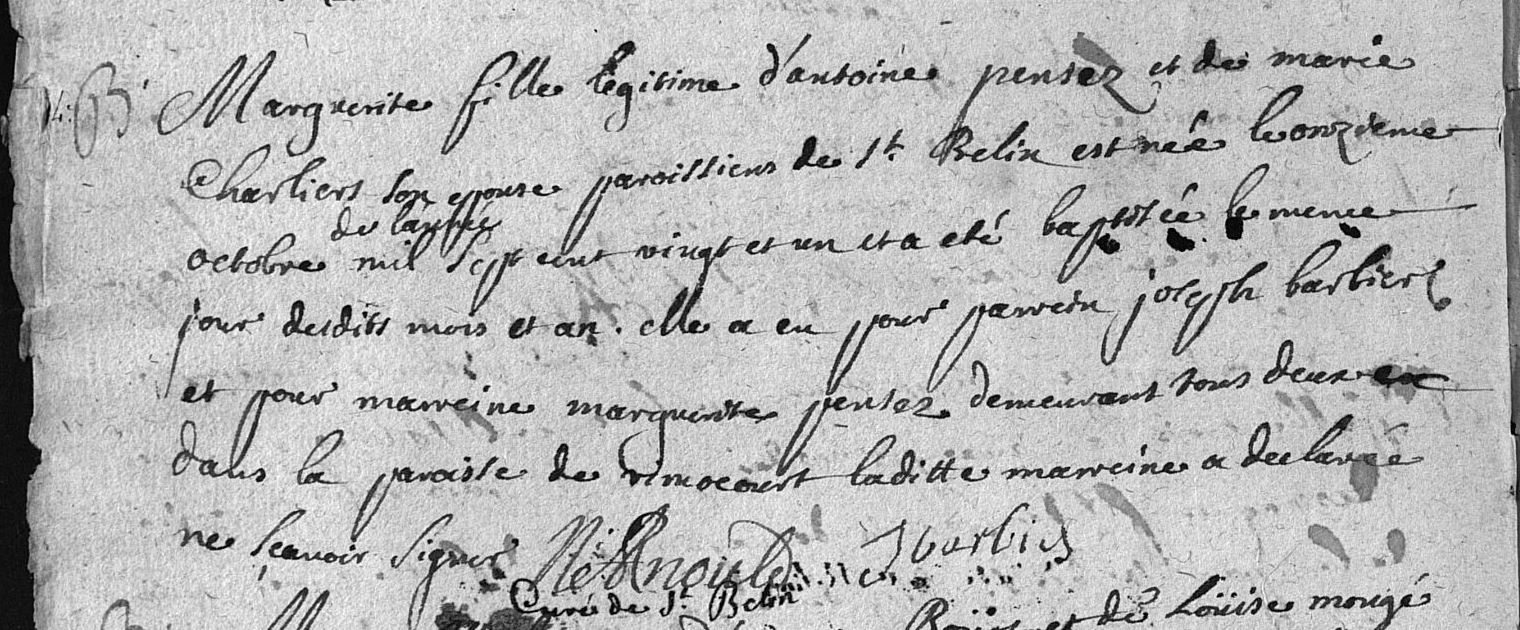 14. B Marguerite fille legitime d'antoine pensez et de marie
Charliers son epouse paroissiens de St. Belin est née le onzieme
de lannée
octobre mil sept cent vingt et un et a eté baptisée le meme
jour desdits mois et an. elle a eu pour parrein joseph barbiers
et pour marreine marguerite pensez demeurant tous deux
dans la paroisse de vrnocourt laditte marreine a declarée
ne sçavoir signer N. Arnould J barbier
Curé de St. Belin
et de Loüise mougé